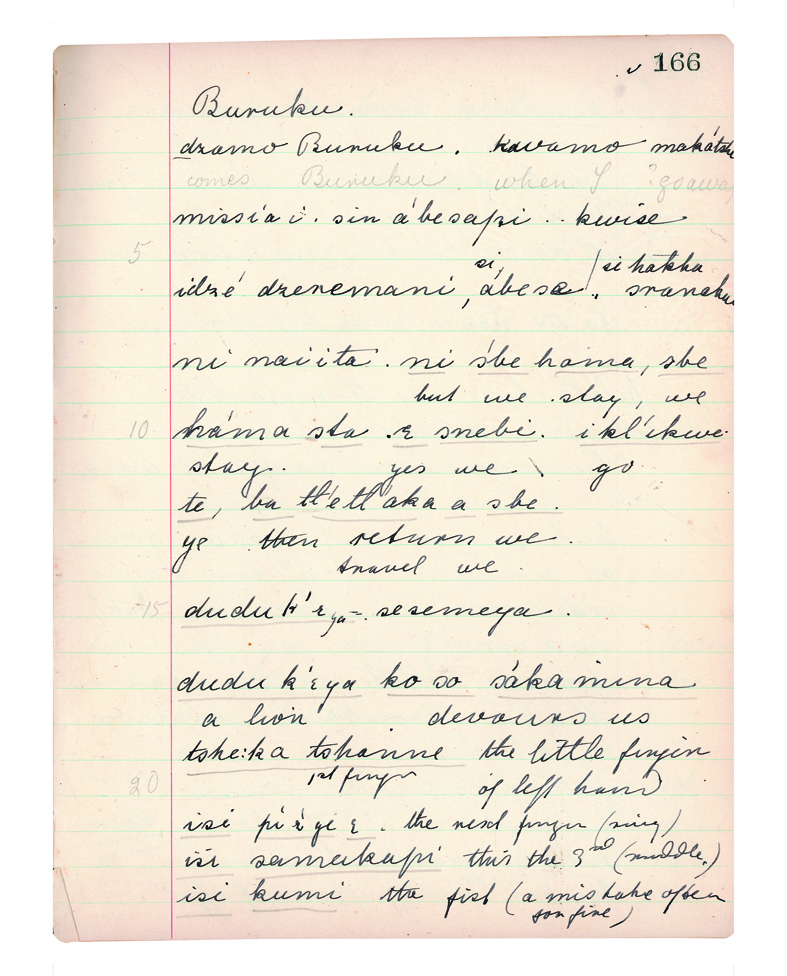 166
Buruku.
dzamo Buruku. kwamo makátsh
comes Buruku. when I ? go away
missía i. sin ábesapi .. kwise
5
si, / si hakka
idzé dzeremani, ábese,
ni naiita. ni śbe hama, sbe
but we stay, we
10 háma sta. ɛ snebi. ikl'ikwe
stay. yes we go
te, ba tl'etl'aka a sbe.
ye then return we.
travel we.
15 duduk'ɛya =. sesemeya.
dudu k'ɛya ko so sáka mina
a lion devours us
tshe:ka tshanne the little finger
20 1st finger of left hand
isi pi'ɛ́ye ɛ. the next finger (ring)
isi samukapi this the 3rd (middle.)
isi kumi the fist (a mistake often
for five)